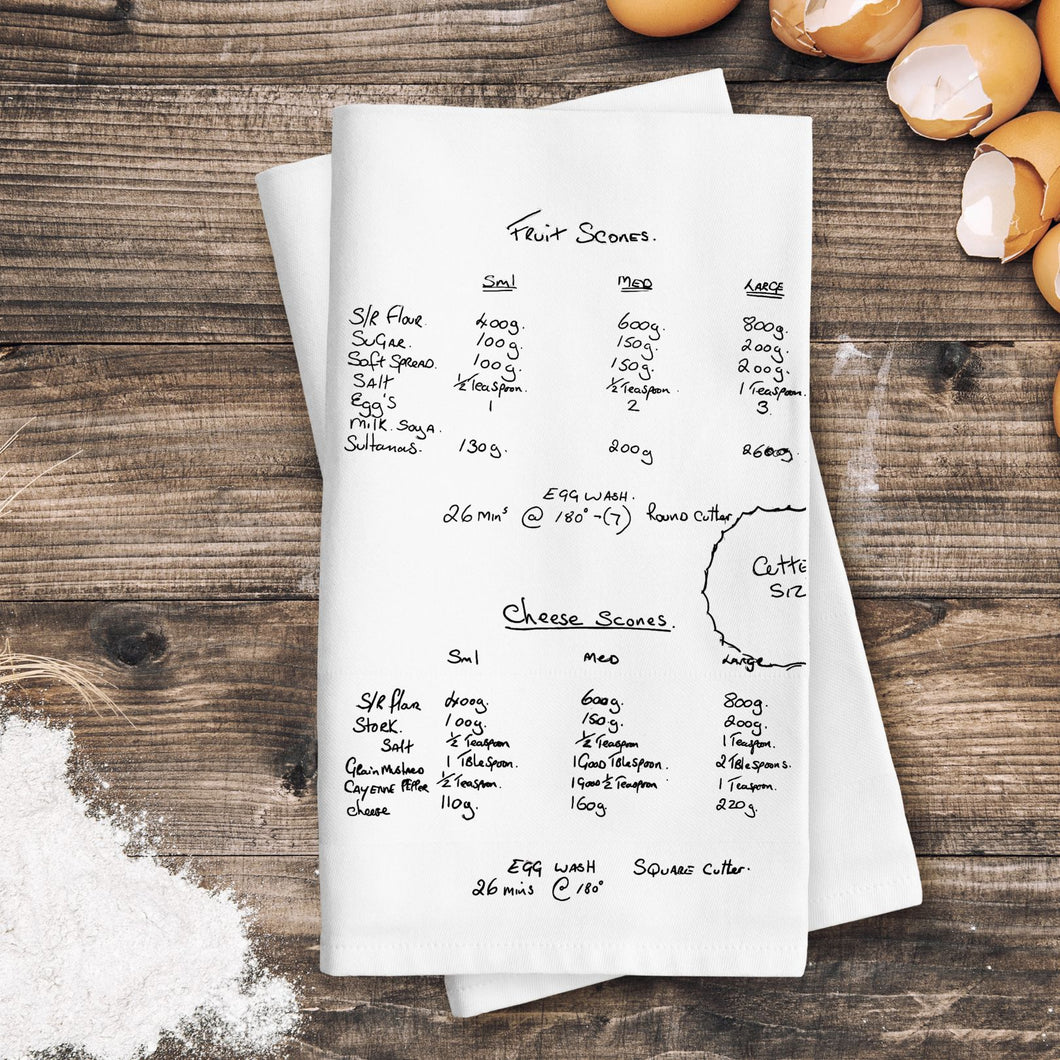 Fruit Scones.
Sml MED LARGE
S/R Flour. 400g. 600g. 800g.
Sugar. 100g. 150g. 200g.
Soft Spread. 100g. 150g. 200g.
Salt ½ Teaspoon. ½ Teaspoon. 1 Teaspoon.
Egg's 1 2 3.
Milk. Soya.
Sultanas. 130g. 200g 260g.
EGG WASH.
26 Mins @ 180° -(7) Round Cutter
Cutte
Siz
Cheese Scones.
Sml Med Large
S/R flour 400g. 600g. 800g.
Stork. 100g. 150g. 200g.
Salt ½ Teaspoon ½ Teaspoon 1 Teaspoon.
Grain Mustard 1 Tblespoon. 1 Good Tblespoon. 2 Tblespoons.
Cayenne Pepper ½ Teaspoon. 1 Good ½ Teaspoon 1 Teaspoon.
Cheese 110g. 160g. 220g.
EGG WASH SQUARE Cutter.
26 mins @ 180°